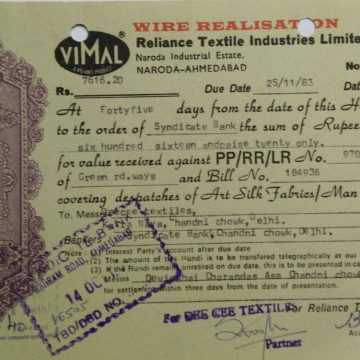 WIRE REALISATION
VIMAL
A RELIANCE PRODUCT
Reliance Textile Industries Limite
Naroda Industrial Estate,
NARODA-AHMEDABAD
No
7616.20
Rs.
Due Date 25/11/83
At Fortyfive days from the date of this H
to the order of Syndicate Bank the sum of Rupee
six hundred sixteen and praise twenty only.
for value received against PP/RR/LR No. 970
of Green rd.ways and Bill No. 184036
covering despatches of Art Silk Fabrics/Man
To Mess Dee cee textiles,
Chandni chowk, Delhi.
Bankers Syndicate Bank, Chandni Chowk, Delhi.
Note: (1) Interest Party's account after due date
(2) The amount of the Hundi to be transferred telegraphically at our
(3) If the Hundi remains unretired on due date, this is to be presented
Messrs Devi Sahai Charandas Chandni cho
for settlement within three days of presentation.
14 OC
TBD/DBD NO.
16505
For DEE CEE TEXTILE
Partner
For Reliance